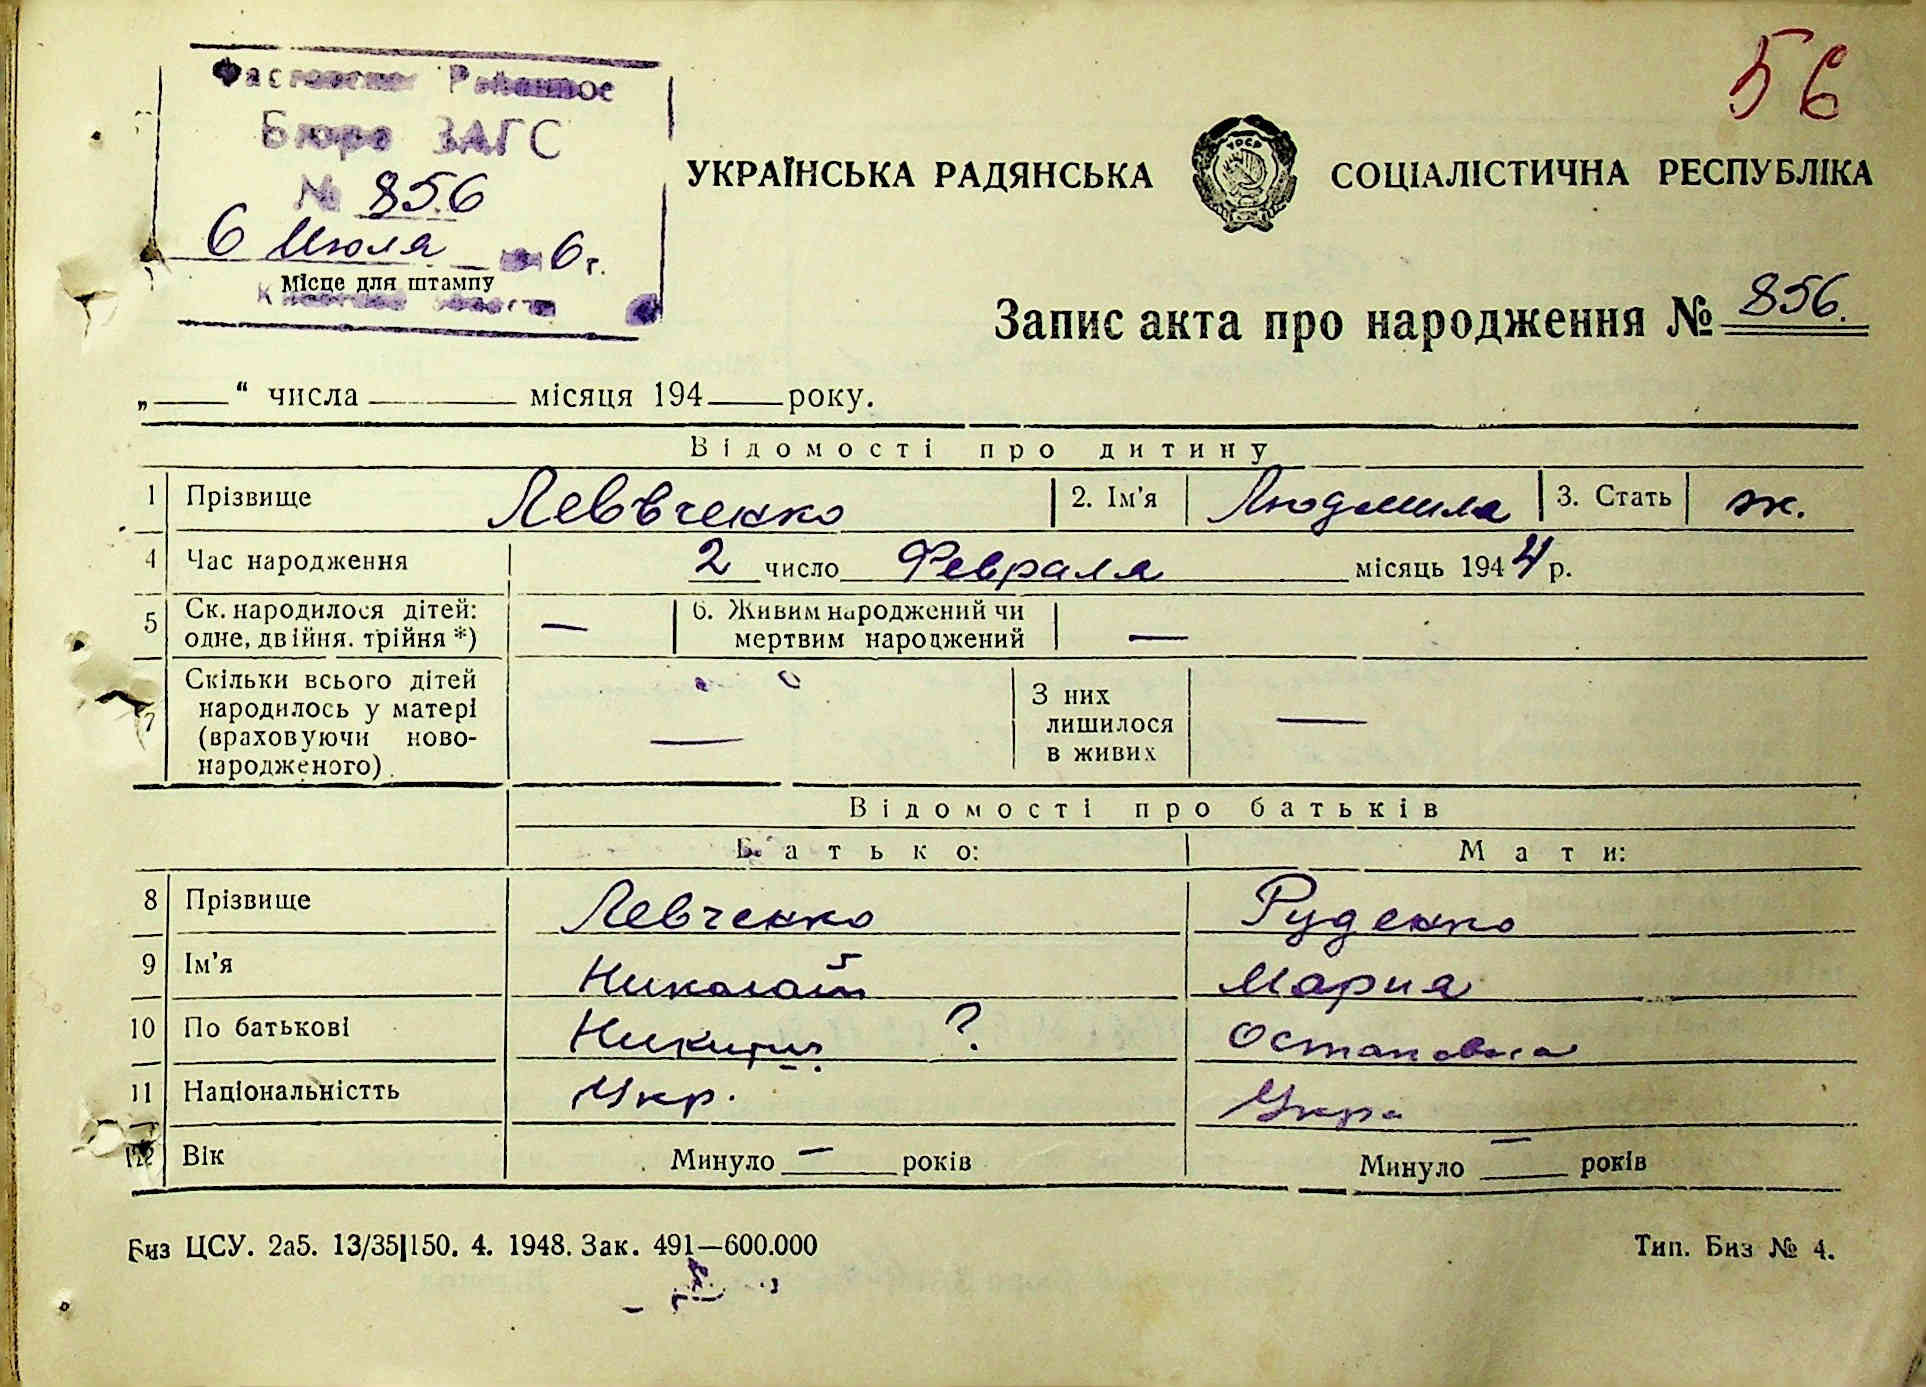 56
Районное
Бюро ЗАГС
№ 856
6 Июля 6 г.
Місце для штампу
УКРАЇНСЬКА РАДЯНСЬКА СОЦІАЛІСТИЧНА РЕСПУБЛІКА
Запис акта про народження № 856.
„ “ числа місяця 194 року.
Відомості про дитину
1 Прізвище Левченко 2. Ім'я Людмила 3. Стать ж.
4 Час народження 2 число Февраля місяць 1944 р.
5 Ск. народилося дітей: одне, двійня. трійня *) — 6. Живим народжений чи мертвим народжений —
7 Скільки всього дітей народилось у матері (враховуючи ново-народженого). — З них лишилося в живих —
Відомості про батьків
Батько: Мати:
8 Прізвище Левченко Руденко
9 Ім'я Николай Мария
10 По батькові Никитич ? Остаповна
11 Національністть Укр. Укра
12 Вік Минуло — років Минуло — років
Биз ЦСУ. 2а5. 13/35|150. 4. 1948. Зак. 491—600.000 Тип. Биз № 4.